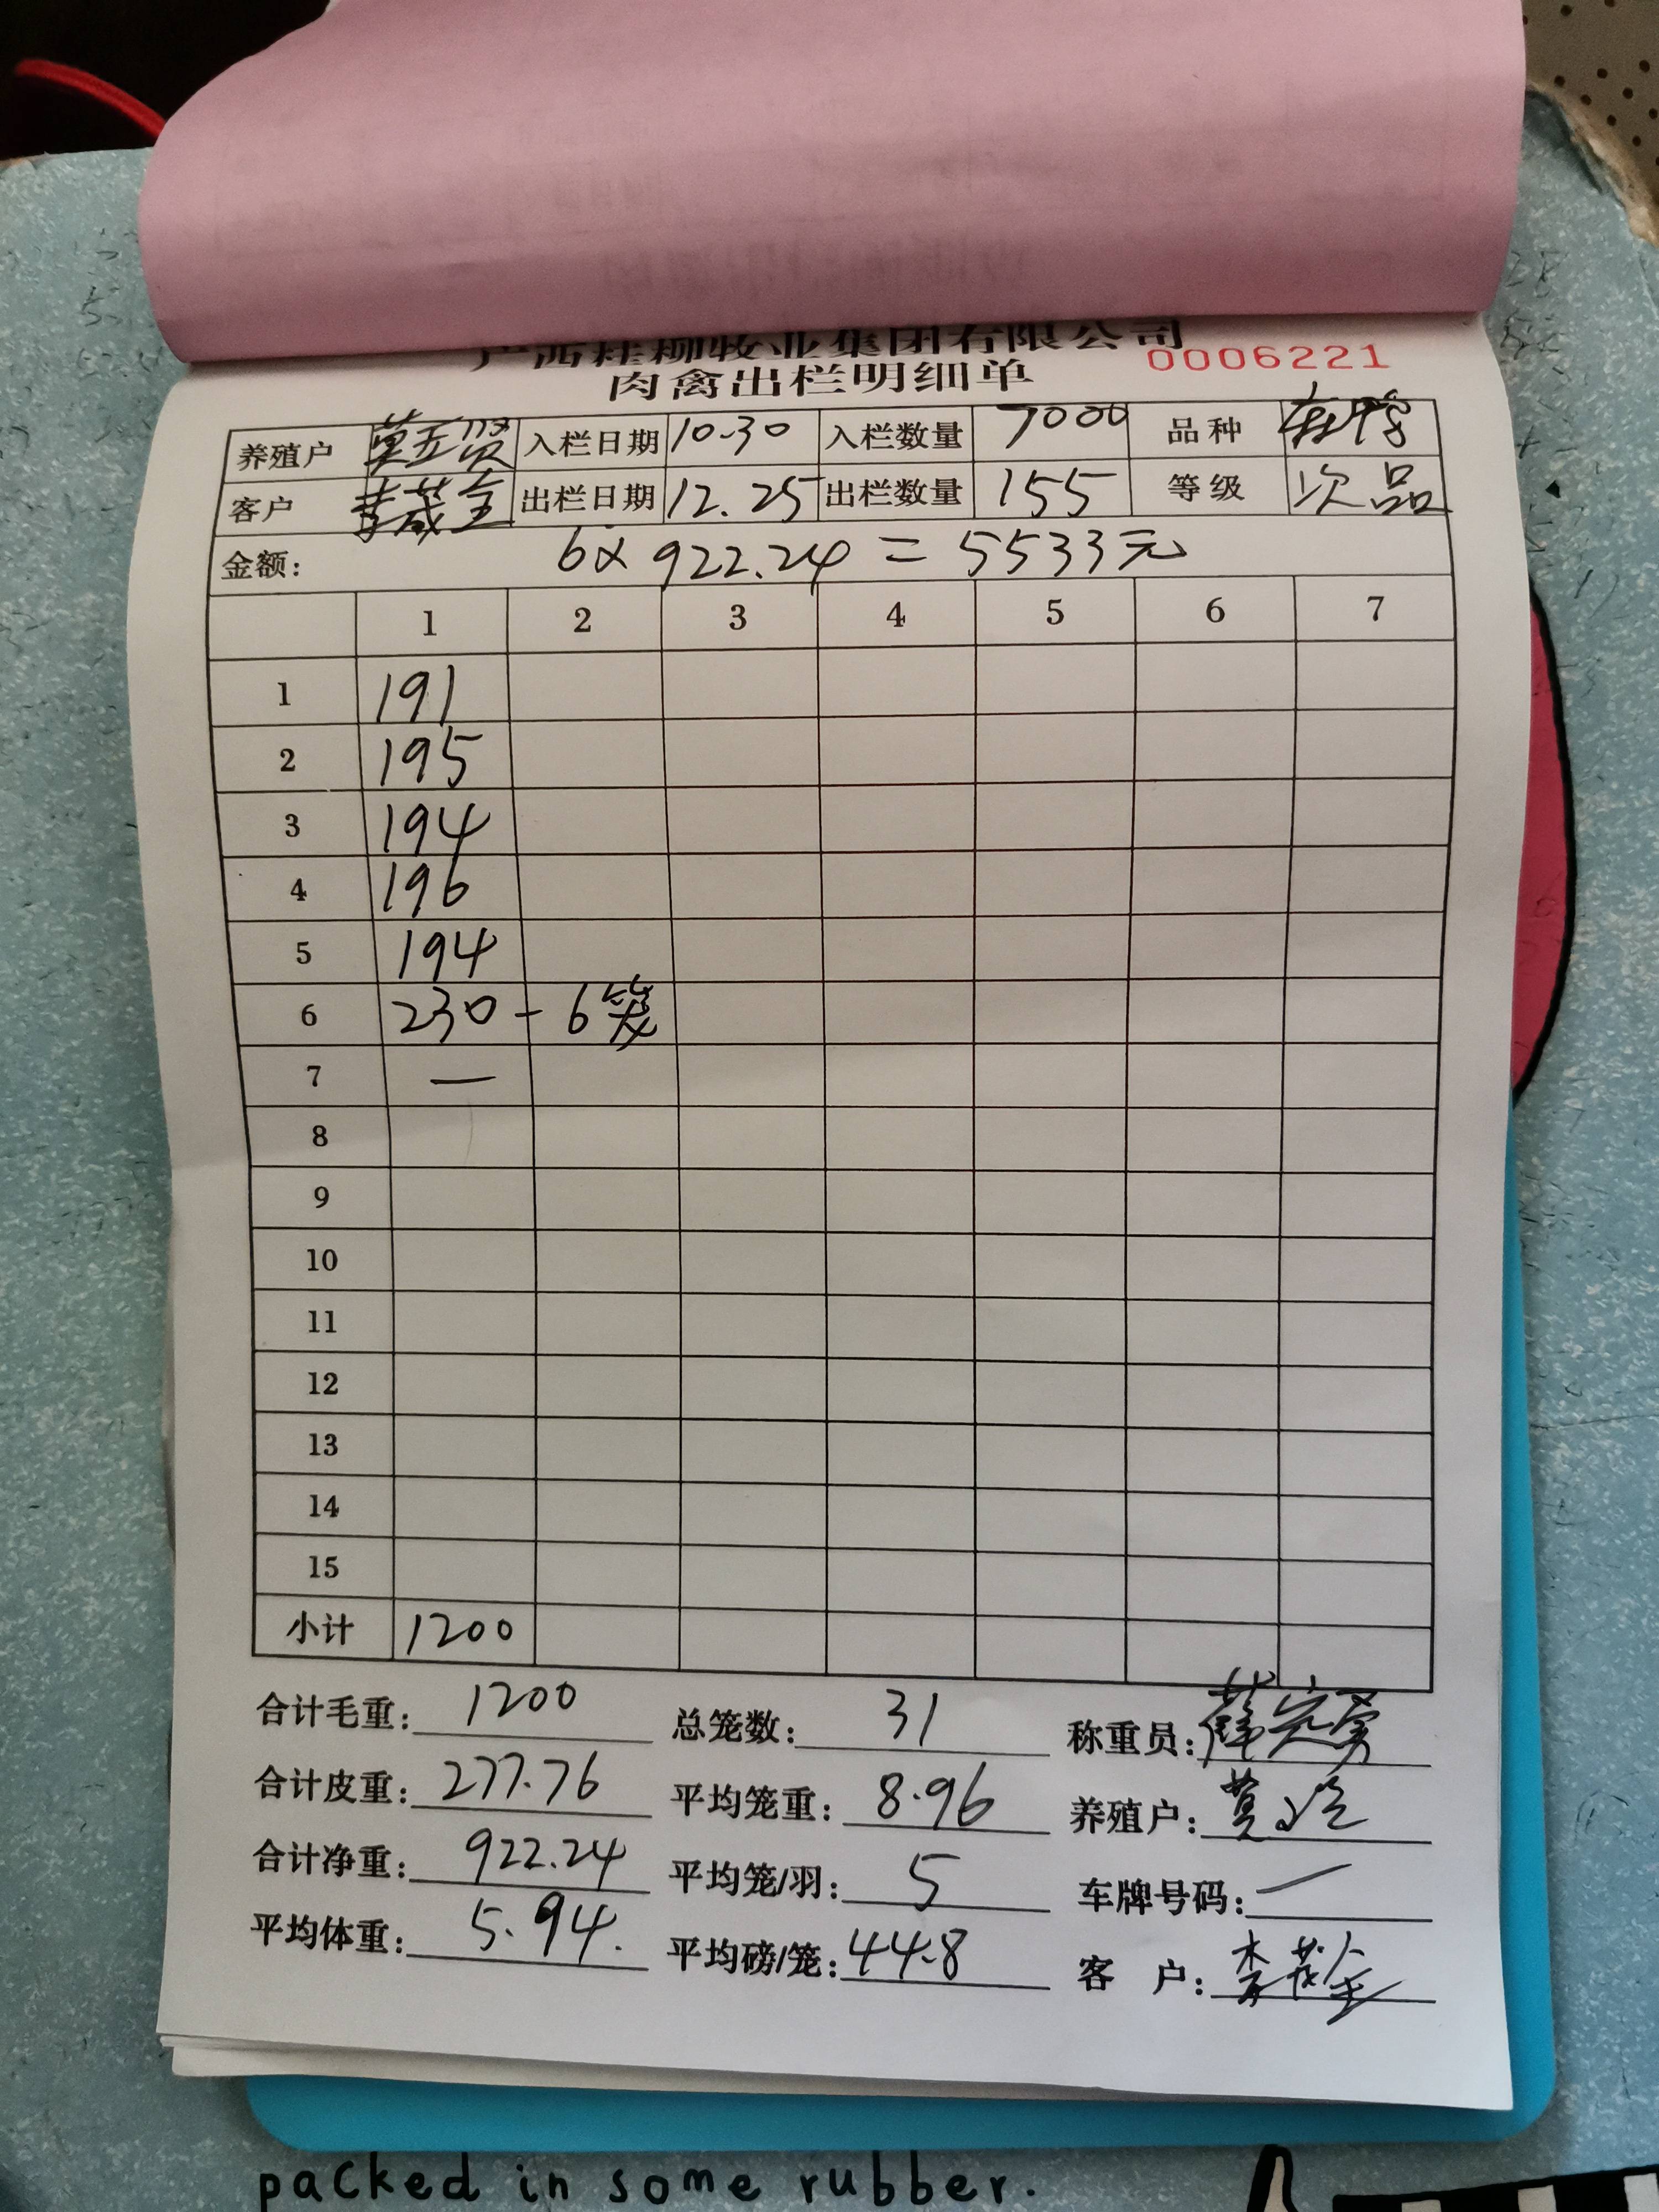 广西桂柳牧业集团有限公司
肉禽出栏明细单 0006221
养殖户 莫五贤 入栏日期 10.30 入栏数量 7000 品种
客户 李茂全 出栏日期 12.25 出栏数量 155 等级 次品
金额: 6x922.24=5533元
1 2 3 4 5 6 7
1 191
2 195
3 194
4 196
5 194
6 230-6笼
7 —
8
9
10
11
12
13
14
15
小计 1200
合计毛重: 1200 总笼数: 31 称重员:
合计皮重: 277.76 平均笼重: 8.96 养殖户:
合计净重: 922.24 平均笼/羽: 5 车牌号码: —
平均体重: 5.94. 平均磅/笼: 44.8 客 户: 李茂全
packed in some rubber.